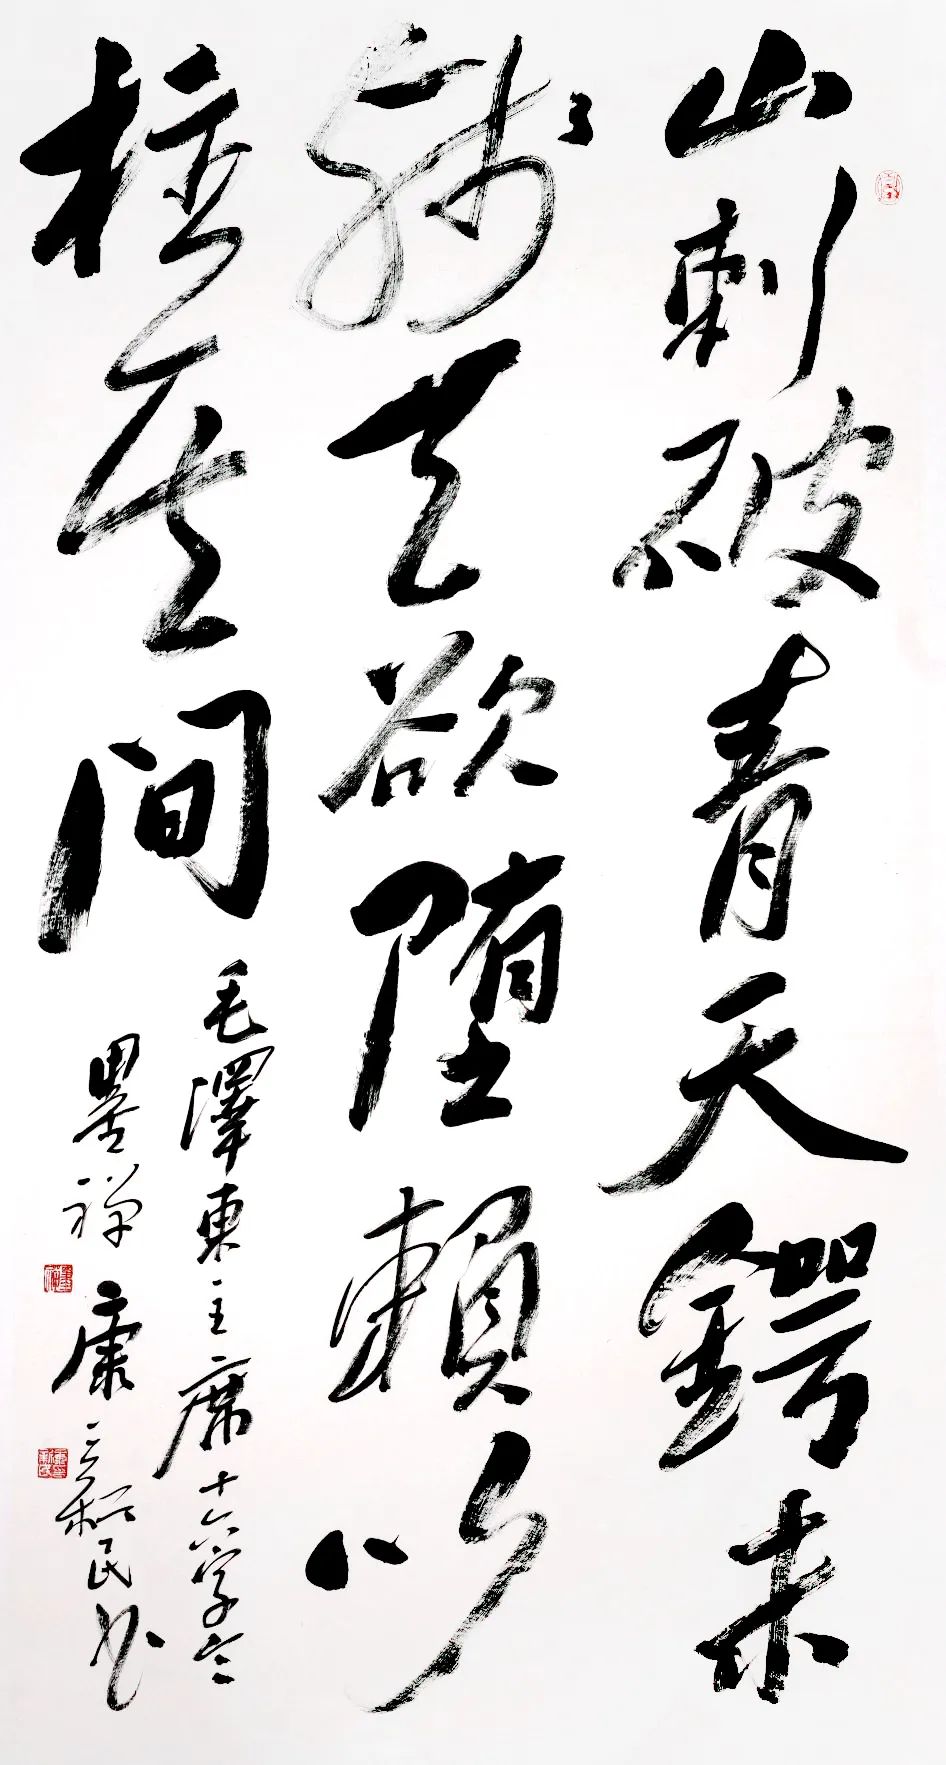 山刺破青天鍔未
残天欲堕賴以
柱其间
毛澤東主席十六字令
墨禅 康 民书